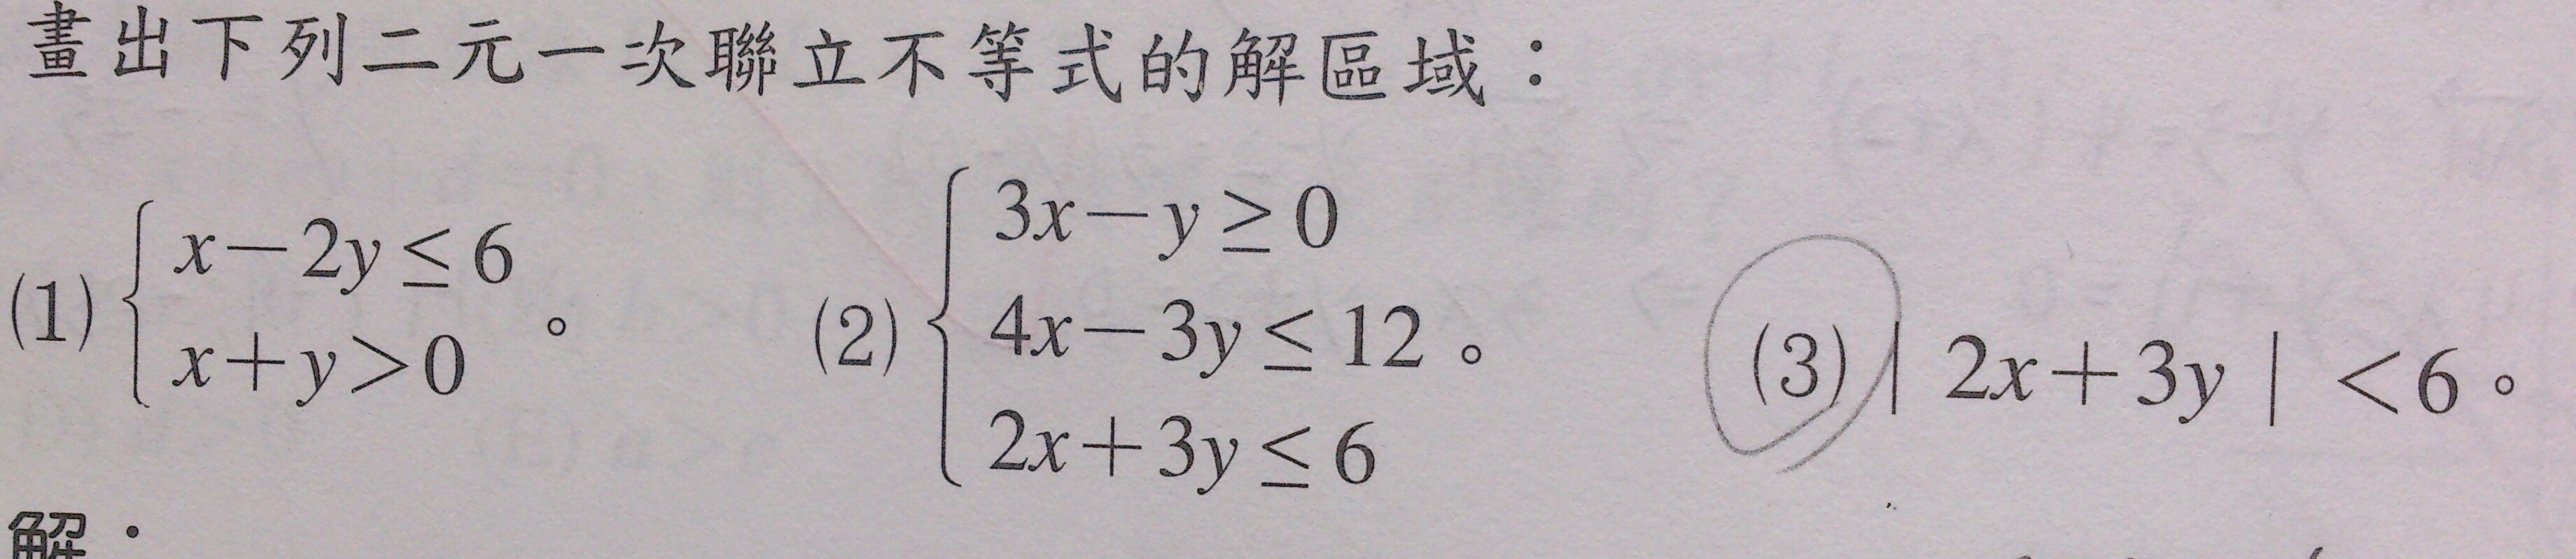 畫出下列二元一次聯立不等式的解區域：
(1) { x－2y ≤ 6
x＋y＞0 。
(2) { 3x－y ≥ 0
4x－3y ≤ 12 。
2x＋3y ≤ 6
(3) | 2x＋3y | ＜6。
解：